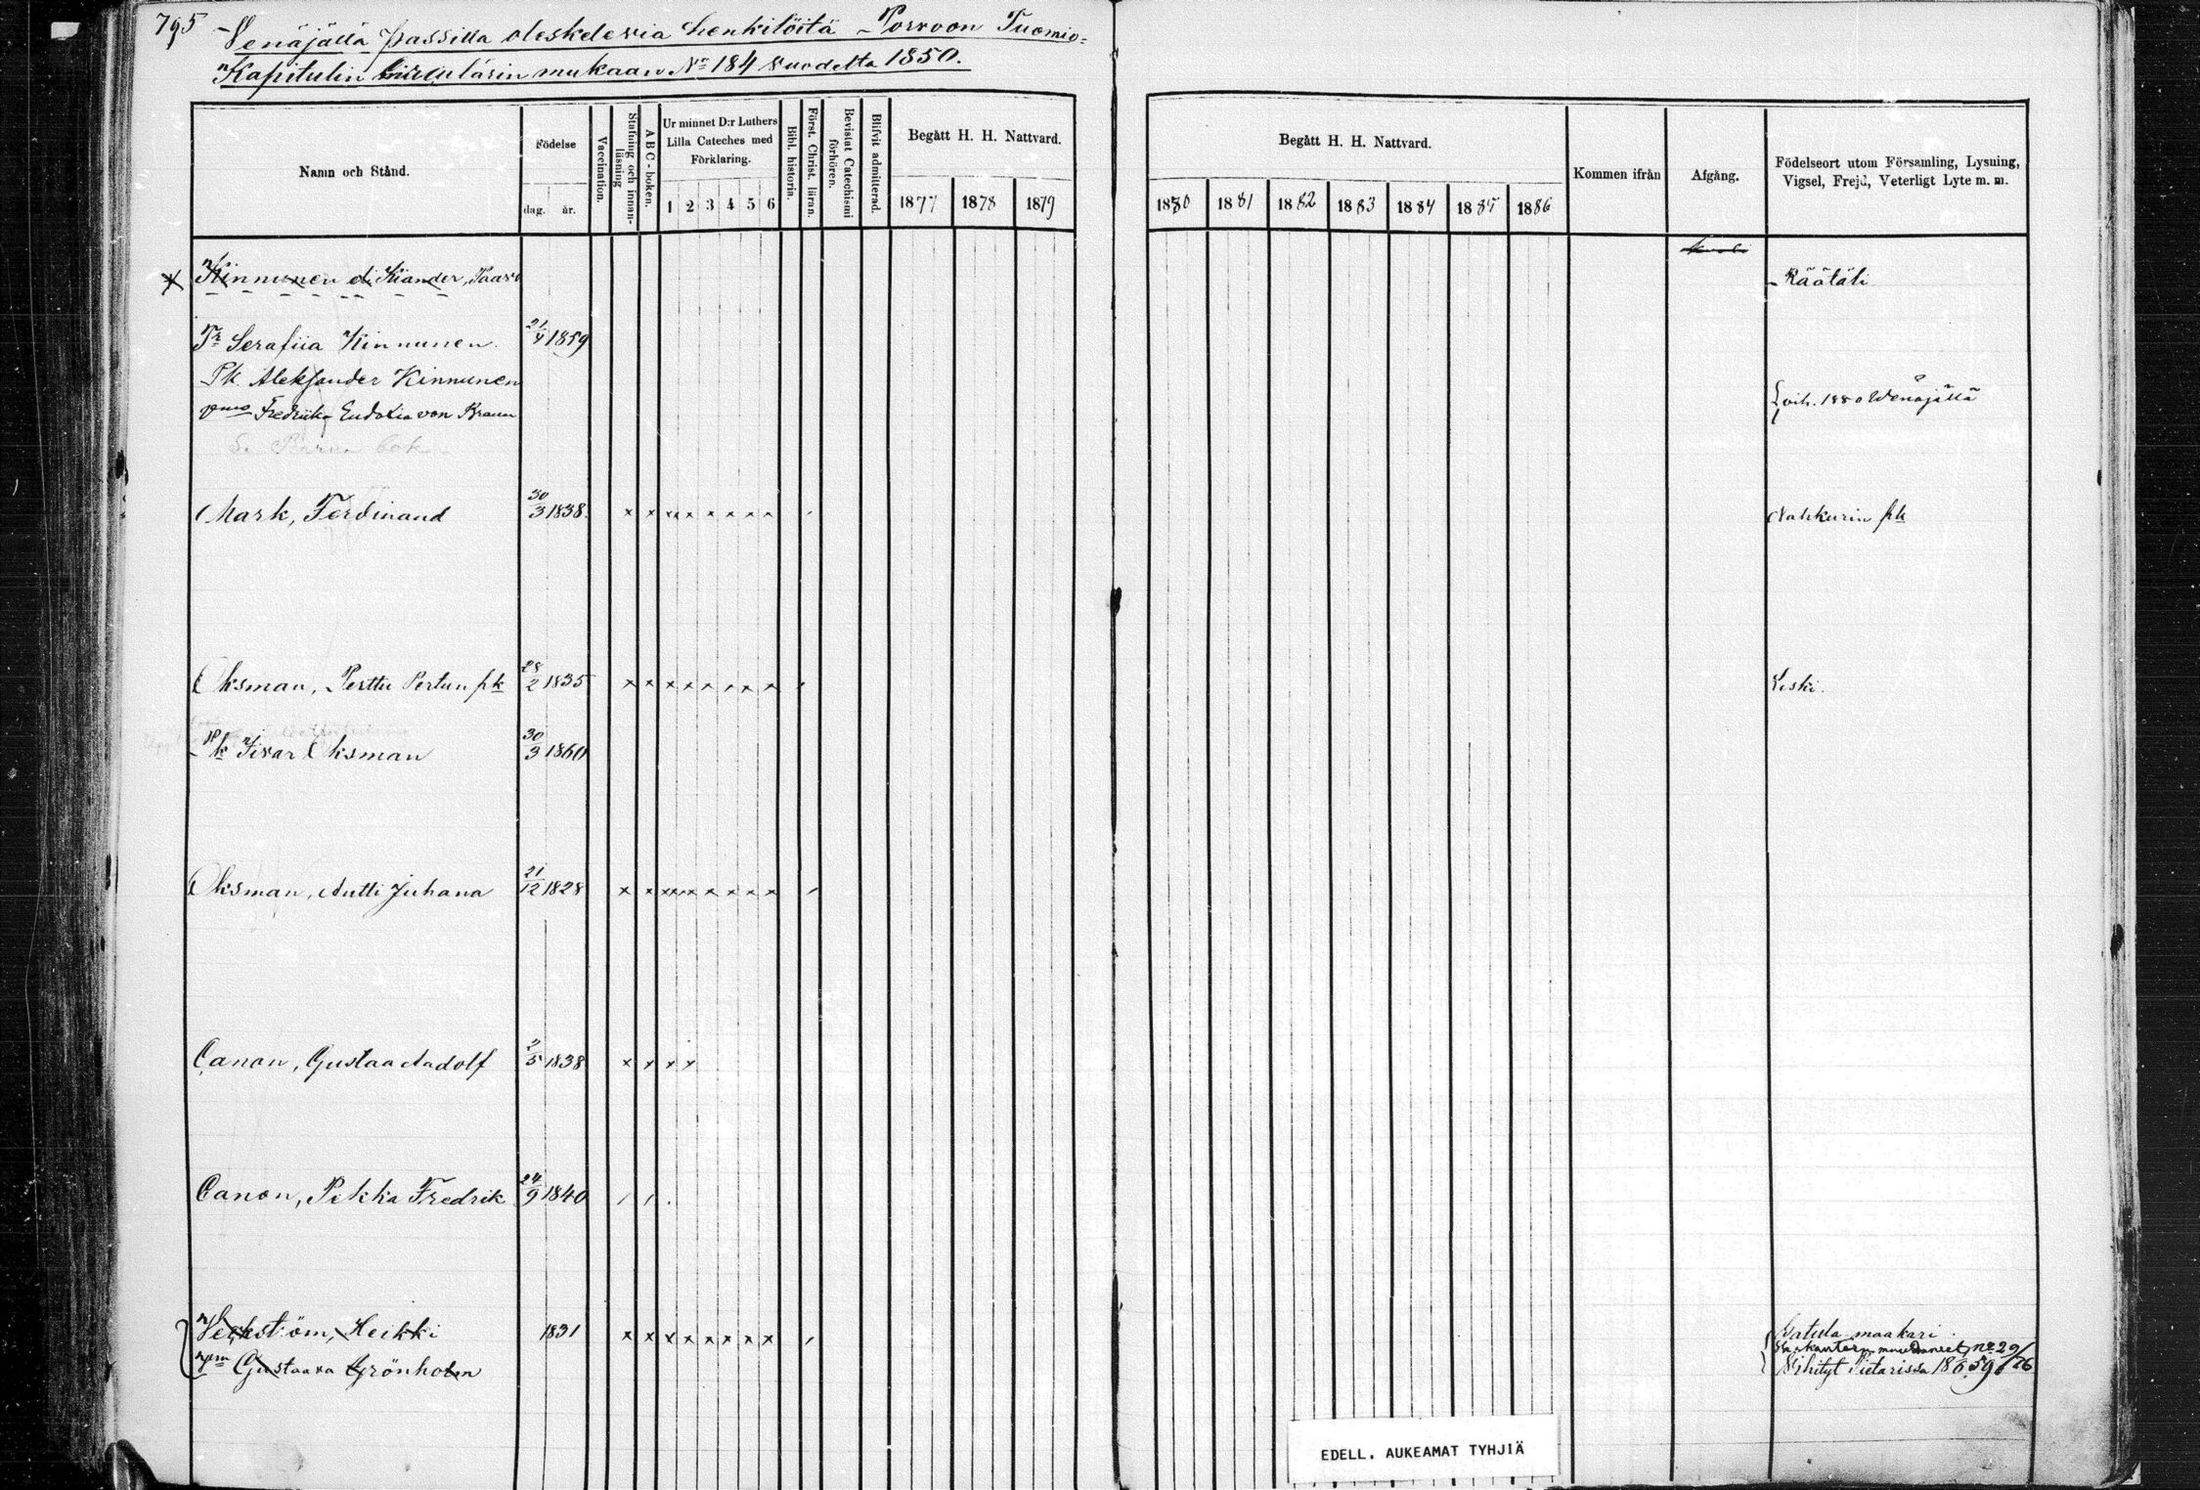 795
Venäjällä passilla oleskelevia henkilöitä Porvoon Tuomio=
Kapitulin mukaan No 184 vuodelta 1850.
Namn och Stånd.
Födelse
dag.
år.
Vaccination.
Stafning och innan-
läsning
ABC-boken.
Ur minnet D:r Luthers
Lilla Cateches med
Förklaring.
1 2 3 4 5 6
Bibl. historia.
Först. Christ. läran.
Bevistat Catechismi
förhören.
Blifvit admitterad.
Begått H. H. Nattvard.
1877 1878 1879
Begått H. H. Nattvard.
1880 1881 1882 1883 1884 1885 1886
Kommen ifrån
Afgång.
Födelseort utom Församling, Lysning,
Vigsel, Frejd, Veterligt Lyte m. m.
Kinnunen eli Kiander, Paavo
Räätäli
Tr Serafiia Kinnunen 21/4 1859
Pk Aleksander Kinnunen
vmo Fredrika Eudoxia von Braun
vih. 1880 Wenäjällä
Mark, Ferdinand 30/3 1838. x x x x x x x x
Nahkurin pk
Oksman, Perttu Pertun pk 28/2 1835 x x x x x x x x
Leski.
Pk Iivar Oksman 30/3 1860
Oksman, Antti Juhana 21/12 1828 x x x x x x x x
Canon, Gustaa Aadolf 2/5 1838 x x x x
Canon, Pekka Fredrik 24/9 1840
Veckström, Heikki 1831 x x x x x x x x
vm Gustaava Grönholm
Satula maakari
Vihityt Pietarissa
EDELL. AUKEAMAT TYHJIÄ